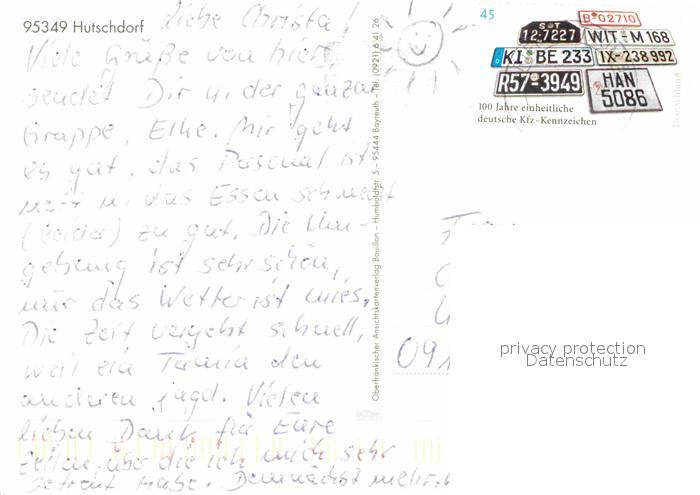 95349 Hutschdorf
Liebe Christa!
Viele Grüße von hier
sendet Dir u. der ganzen
Gruppe, Elke. Mir geht
es gut, das Personal ist
nett u. das Essen schmeckt
(leider) zu gut. Die Um-
gebung ist sehr schön,
nur das Wetter ist mies.
Die Zeit vergeht schnell,
weil ein Termin den
anderen jagd. Vielen
lieben Dank für Eure
Zeilen, über die ich mich sehr
gefreut habe. Demnächst mehr.
Oberfränkischer Ansichtskartenverlag Bouillon – Humboldtstr. 5 – 95444 Bayreuth – Tel. (0921) 6 41 26
45
B-02710
S T
12-7227
WIT-M 168
KI BE 233
IX-238992
R57-3949
HAN
5086
100 Jahre einheitliche
deutsche Kfz-Kennzeichen
Deutschland
091
privacy protection
Datenschutz